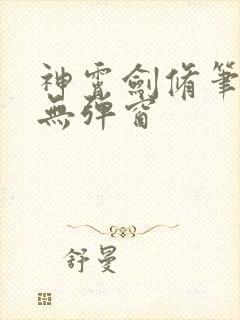 神霄劍脩筆
無彈窗
舒曼